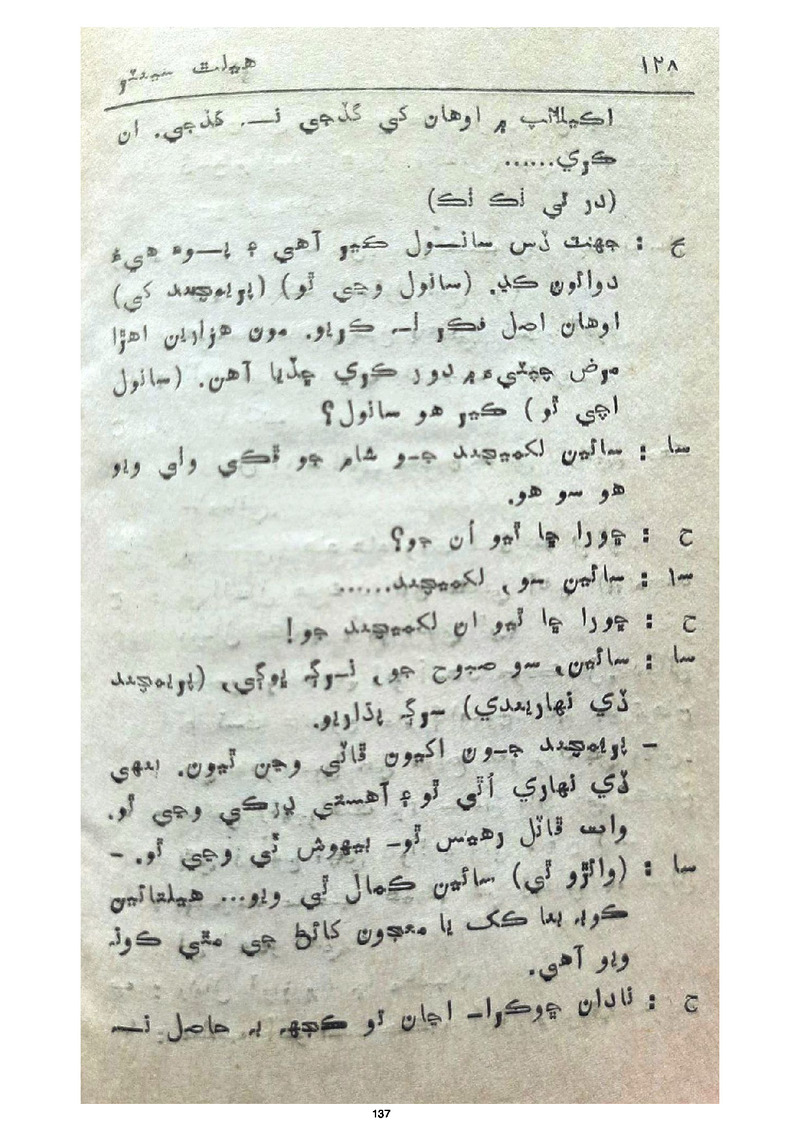 ١٢٨ هيلٿ سينٽر
اڪيلائپ ۾ اوهان کي گڏجي نــہ گڏجي. ان
ڪري......
(در تي ٺڪ ٺڪ)
ح : جهٽ ڏس سانــول ڪير آهي ۽ پــوءِ هيءُ
دوائون ڪڍ. (سانول وڃي ٿو) (پريمچند کي)
اوهان اصل فڪر نہ ڪريو. مون هزارين اهڙا
مرض چپٽيءَ ۾ دور ڪري ڇڏيا آهن. (سانول
اچي ٿو) ڪير هو سانول؟
سا : سائين لکميچند جــو شام جو ڦڪي وٺي ويو
هو سو هو.
ح : ڇورا ڇا ٿيو اُن جو؟
سا : سائين سو، لکميچند......
ح : ڇورا ڇا ٿيو ان لکميچند جو!
سا : سائين، سو صبوح جو، سرڳ پوڳي، (پريمچند
ڏي نهاريندي) سرڳ پڌاريو.
– پريمچند جــون اکيون ڦاٽي وڃن ٿيون. ٻنهي
ڏي نهاري اُٿي ٿو ۽ آهستي ڊرڪي وڃي ٿو.
وات ڦاٽل رهيس ٿو– بيهوش ٿي وڃي ٿو. –
سا : (وائڙو ٿي) سائين ڪمال ٿي ويو... هيلتائين
ڪوبہ بنا ڦڪ يا معجون کائڻ جي مٿي ڪونہ
ويو آهي.
ح : نادان ڇوڪرا– اڃان ٿو ڪجهہ بہ حاصل نــہ
137